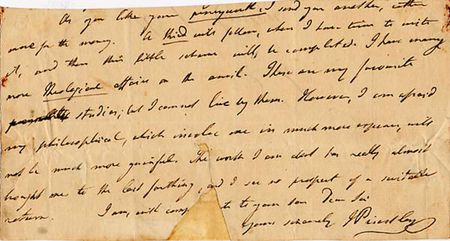 As you like your pennyworth, I send you another, 
more for the money. A third will follow, when I have time to write
it, and then this little scheme will be completed. I have many
more Theological affairs on the anvil. These are my favourite
studies; but I cannot live by them. However, I am afraid
my philosophical, which involve me in much more expence, will
not be much more gainful. The work I am about has really almost
brought me to the last farthing, and I see no prospect of a suitable
return. I am, with comp to your son Dear Sir
Yours sincerely J Priestley